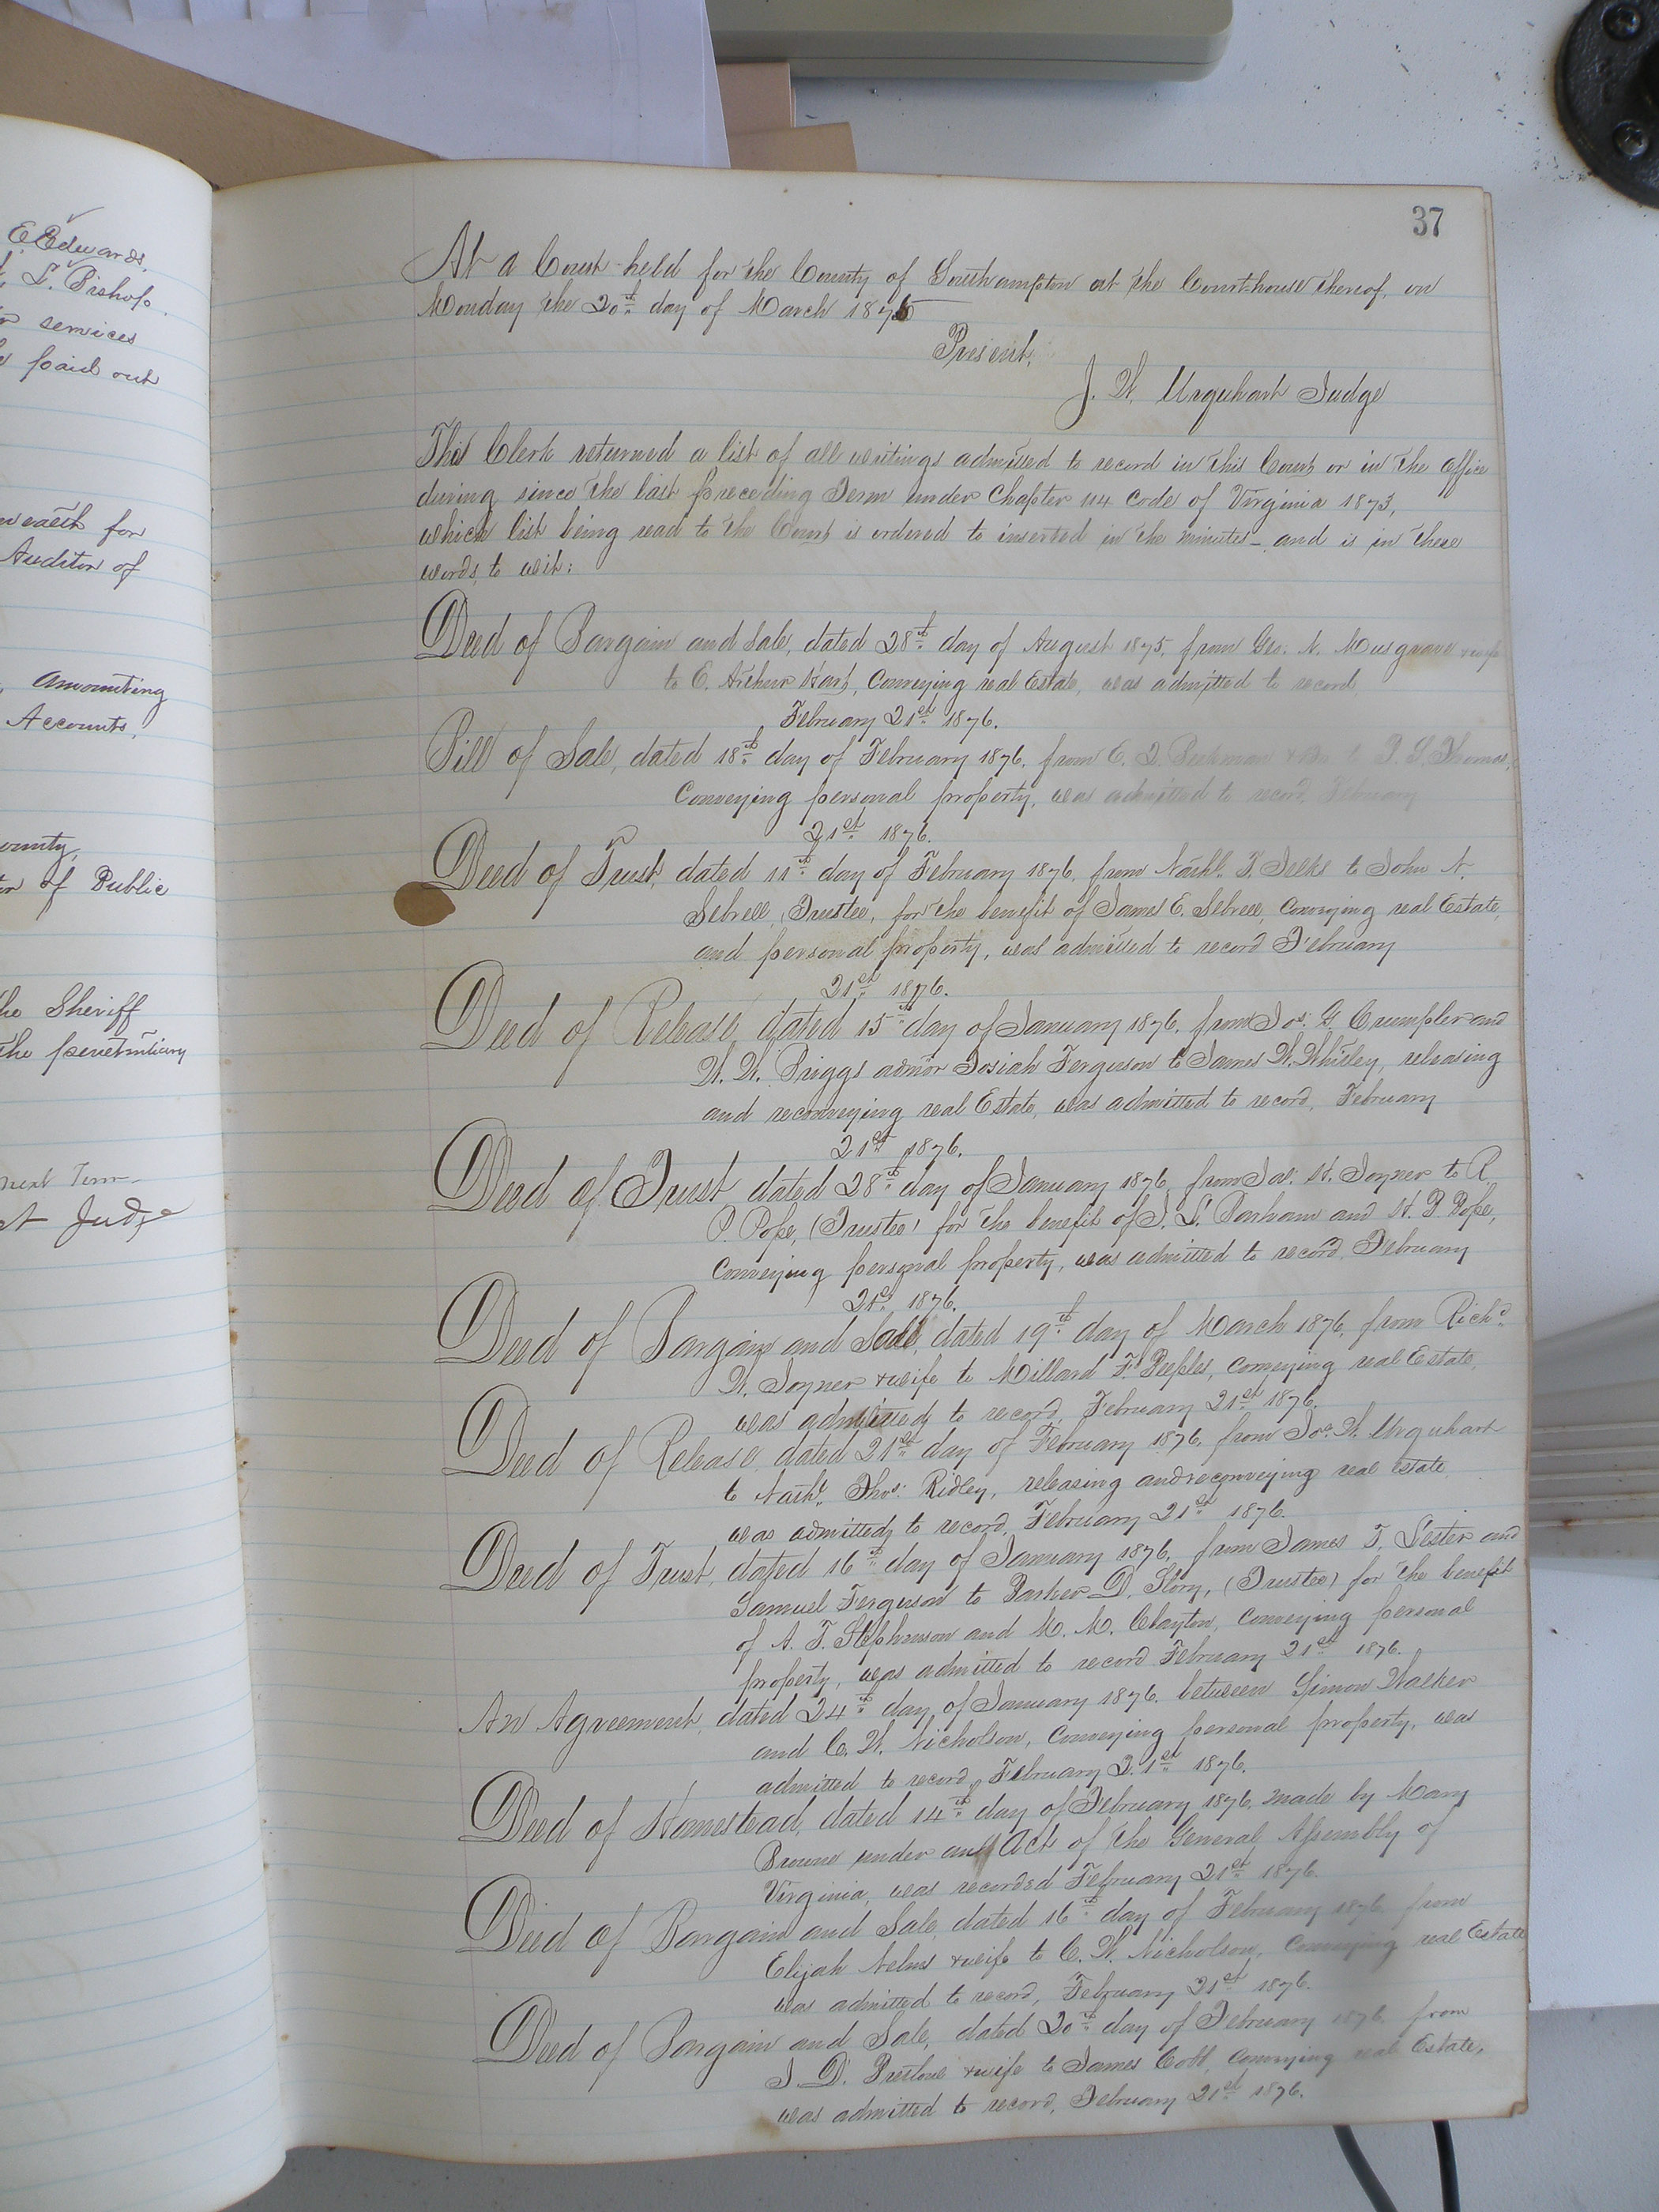 E. Edwards.
L. Bishop.
services
paid out
for
Auditor of
Amounting
Accounts.
County,
of Public
the Sheriff
the penetentiary
next Term
Judge
37
At a Court held for the County of Southampton at the Courthouse thereof, on
Monday the 20th day of March 1876
Present,
J. W. Urquhart Judge
This Clerk returned a list of all writings admitted to record in this Court or in the office
during since the last preceding Term under Chapter 114 Code of Virginia 1873,
which list being read to the Court is ordered to inserted in the minutes and is in these
words, to wit:
Deed of Bargain and Sale, dated 28th day of August 1875, from Geo. N. Musgrave &wife
to E. Arthur Hart, Conveying real Estate, was admitted to record
February 21st 1876.
Bill of Sale, dated 18th day of February 1876, from E. Beekman to P. Thomas,
Conveying personal property, was admitted to record, February
21st 1876.
Deed of Trust, dated 11th day of February 1876, from Nathl. T. to John N.
Sebrell, Trustee, for the benefit of James E. Sebrell, Conveying real Estate,
and personal property, was admitted to record February
21st 1876.
Deed of Release, dated 15th day of January 1876, from Jos. G. Crumpler and
W. W. Briggs admor Josiah Ferguson to James W. Whitley, releasing
and reconveying real Estate, was admitted to record, February
21st 1876.
Deed of Trust dated 28th day of January 1876, from Jas. H. Joyner to R.
P. Pope, (Trustee) for the benefit of J. L. Barham and H. B. Pope,
Conveying personal property, was admitted to record, February
21st 1876.
Deed of Bargain and Sale, dated 19th day of March 1876, from Richd
W. Joyner &wife to Millard F. Peeples, conveying real Estate,
was admitted to record, February 21st 1876.
Deed of Release, dated 21st day of February 1876, from Jos. W. Urquhart
to Nathl. Thos. Ridley, releasing and reconveying real estate
was admitted to record, February 21st 1876.
Deed of Trust, dated 16th day of January 1876, from James T. Lester and
Samuel Ferguson to Parker D. Story, (Trustee) for the benefit
of A. T. Stephenson and M. M. Clayton, conveying personal
property, was admitted to record February 21st 1876.
An Agreement, dated 24th day of January 1876, between Simon Walker
and C. W. Nicholson, Conveying personal property, was
admitted to record, February 21st 1876.
Deed of Homestead, dated 14th day of February 1876, made by Mary
Browne under an Act of the General Assembly of
Virginia, was recorded February 21st 1876.
Deed of Bargain and Sale, dated 16th day of February 1876, from
Elijah Nelms &wife to C. W. Nicholson, Conveying real Estate
was admitted to record, February 21st 1876.
Deed of Bargain and Sale, dated 20th day of February 1876, from
J. D. Bristow &wife to James Cobb, conveying real Estate,
was admitted to record, February 21st 1876.